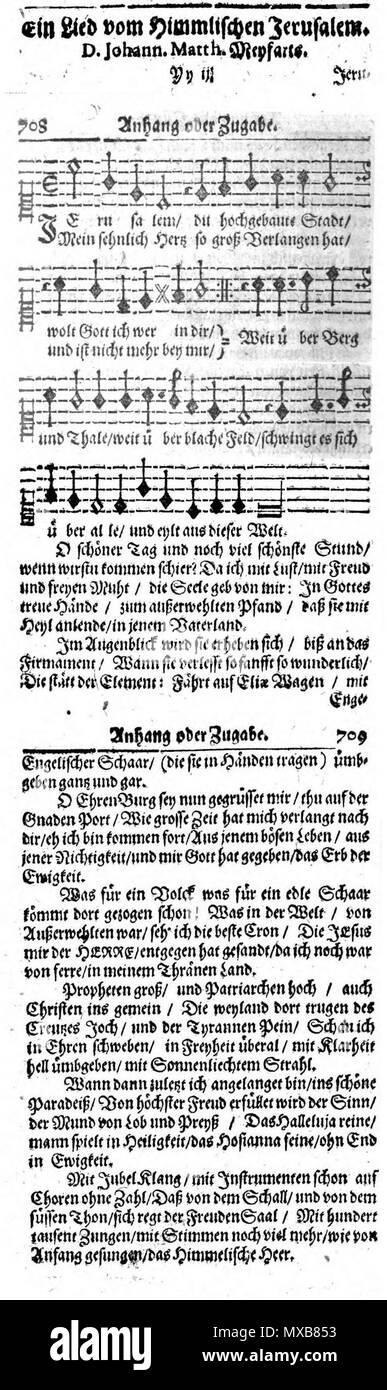 Ein Lied vom Himmlischen Jerusalem.
D. Johann. Matth. Meyfarts.
Yy iij Jeru-
708 Anhang oder Zugabe.
JErusalem/ du hochgebaute Stadt/
Mein sehnlich Hertz so groß Verlangen hat/
wolt Gott ich wer in dir/
und ist nicht mehr bey mir/ Weit uͤber Berg
und Thale/weit uͤber blache Feld/schwingt es sich
uͤber alle/ und eylt aus dieser Welt.
O schöner Tag und noch viel schönste Stund/
wenn wirstu kommen schier? Da ich mit Lust/mit Freud
und freyen Muht / die Seele geb von mir: In Gottes
treue Hände / zum außerwehlten Pfand / daß sie mit
Heyl anlende/in jenem Vaterland.
Im Augenblick wird sie erheben sich / biß an das
Firmament / Wann sie verlesst so sanfft so wunderlich/
Die stätt der Element: Fährt auf Eliæ Wagen / mit
Enge-
Anhang oder Zugabe. 709
Engelischer Schaar/ (die sie in Händen tragen) ümb-
geben gantz und gar.
O EhrenBurg sey nun gegrüsset mir / thu auf der
Gnaden Port / Wie grosse Zeit hat mich verlangt nach
dir/eh ich bin kommen fort/Aus jenem bösen Leben / aus
jener Nichtigkeit/und mir Gott hat gegeben/das Erb der
Ewigkeit.
Was für ein Volck was für ein edle Schaar
kömmt dort gezogen schon! Was in der Welt / von
Außerwehlten war/ seh' ich die beste Cron / Die JEsus
mir der HERRE/entgegen hat gesandt/da ich noch war
von ferre/in meinem Thränen Land.
Propheten groß/ und Patriarchen hoch / auch
Christen ins gemein / Die weyland dort trugen des
Creutzes Joch/ und der Tyrannen Pein/ Schau ich
in Ehren schweben/ in Freyheit überal / mit Klarheit
hell ümbgeben/ mit Sonnenliechtem Strahl.
Wann dann zuletzt ich angelanget bin/ins schöne
Paradeiß/ Von höchster Freud erfüllet wird der Sinn/
der Mund von Lob und Preyß / Das Halleluja reine/
mann spielt in Heiligkeit/das Hosianna feine/ohn End
in Ewigkeit.
Mit Jubel Klang / mit Instrumenten schon auf
Choren ohne Zahl/Daß von dem Schall/und von dem
süssen Thon/sich regt der Freuden Saal / Mit hundert
tausent Zungen/mit Stimmen noch viel mehr/wie von
Anfang gesungen/das Himmelische Heer.
alamy
Image ID: MXB853
www.alamy.com